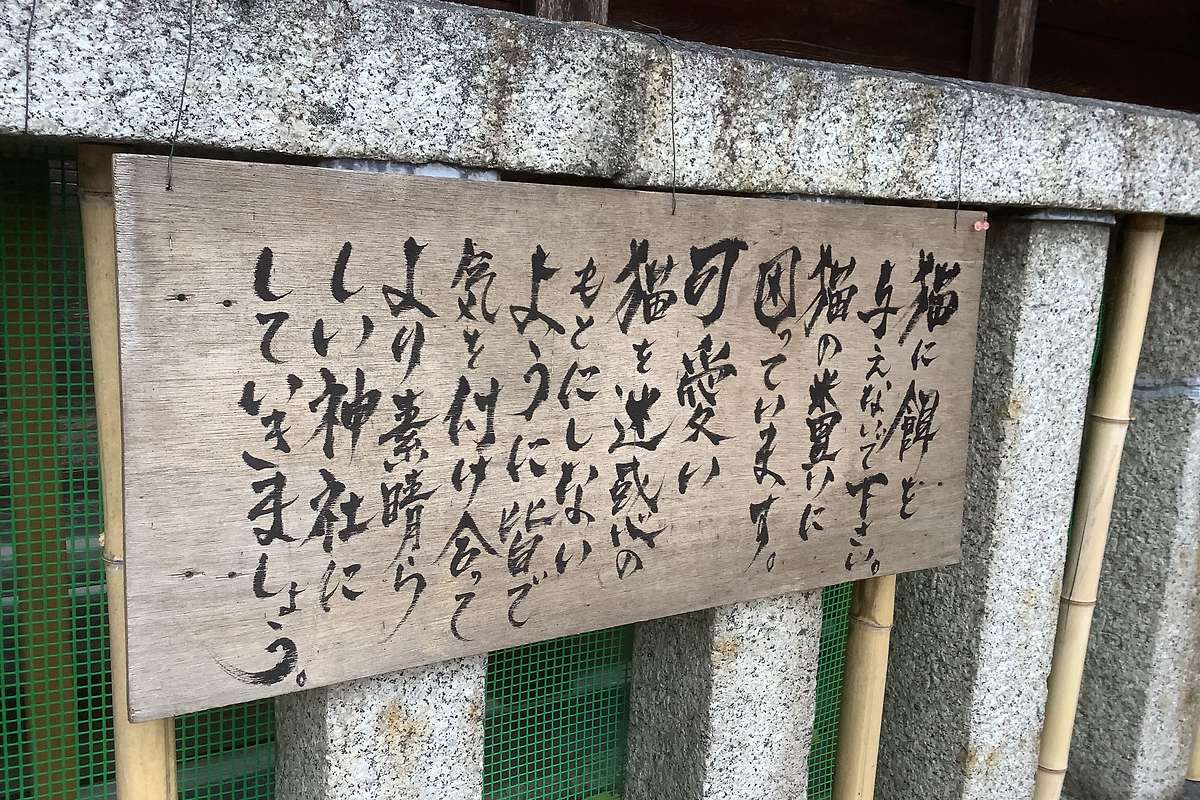 猫に餌を
与えないで下さい。
猫の糞異いに
困っています。
可愛い
猫を迷惑の
もとにしない
ように皆で
気を付け合って
より素晴ら
しい神社に
していきましょう。